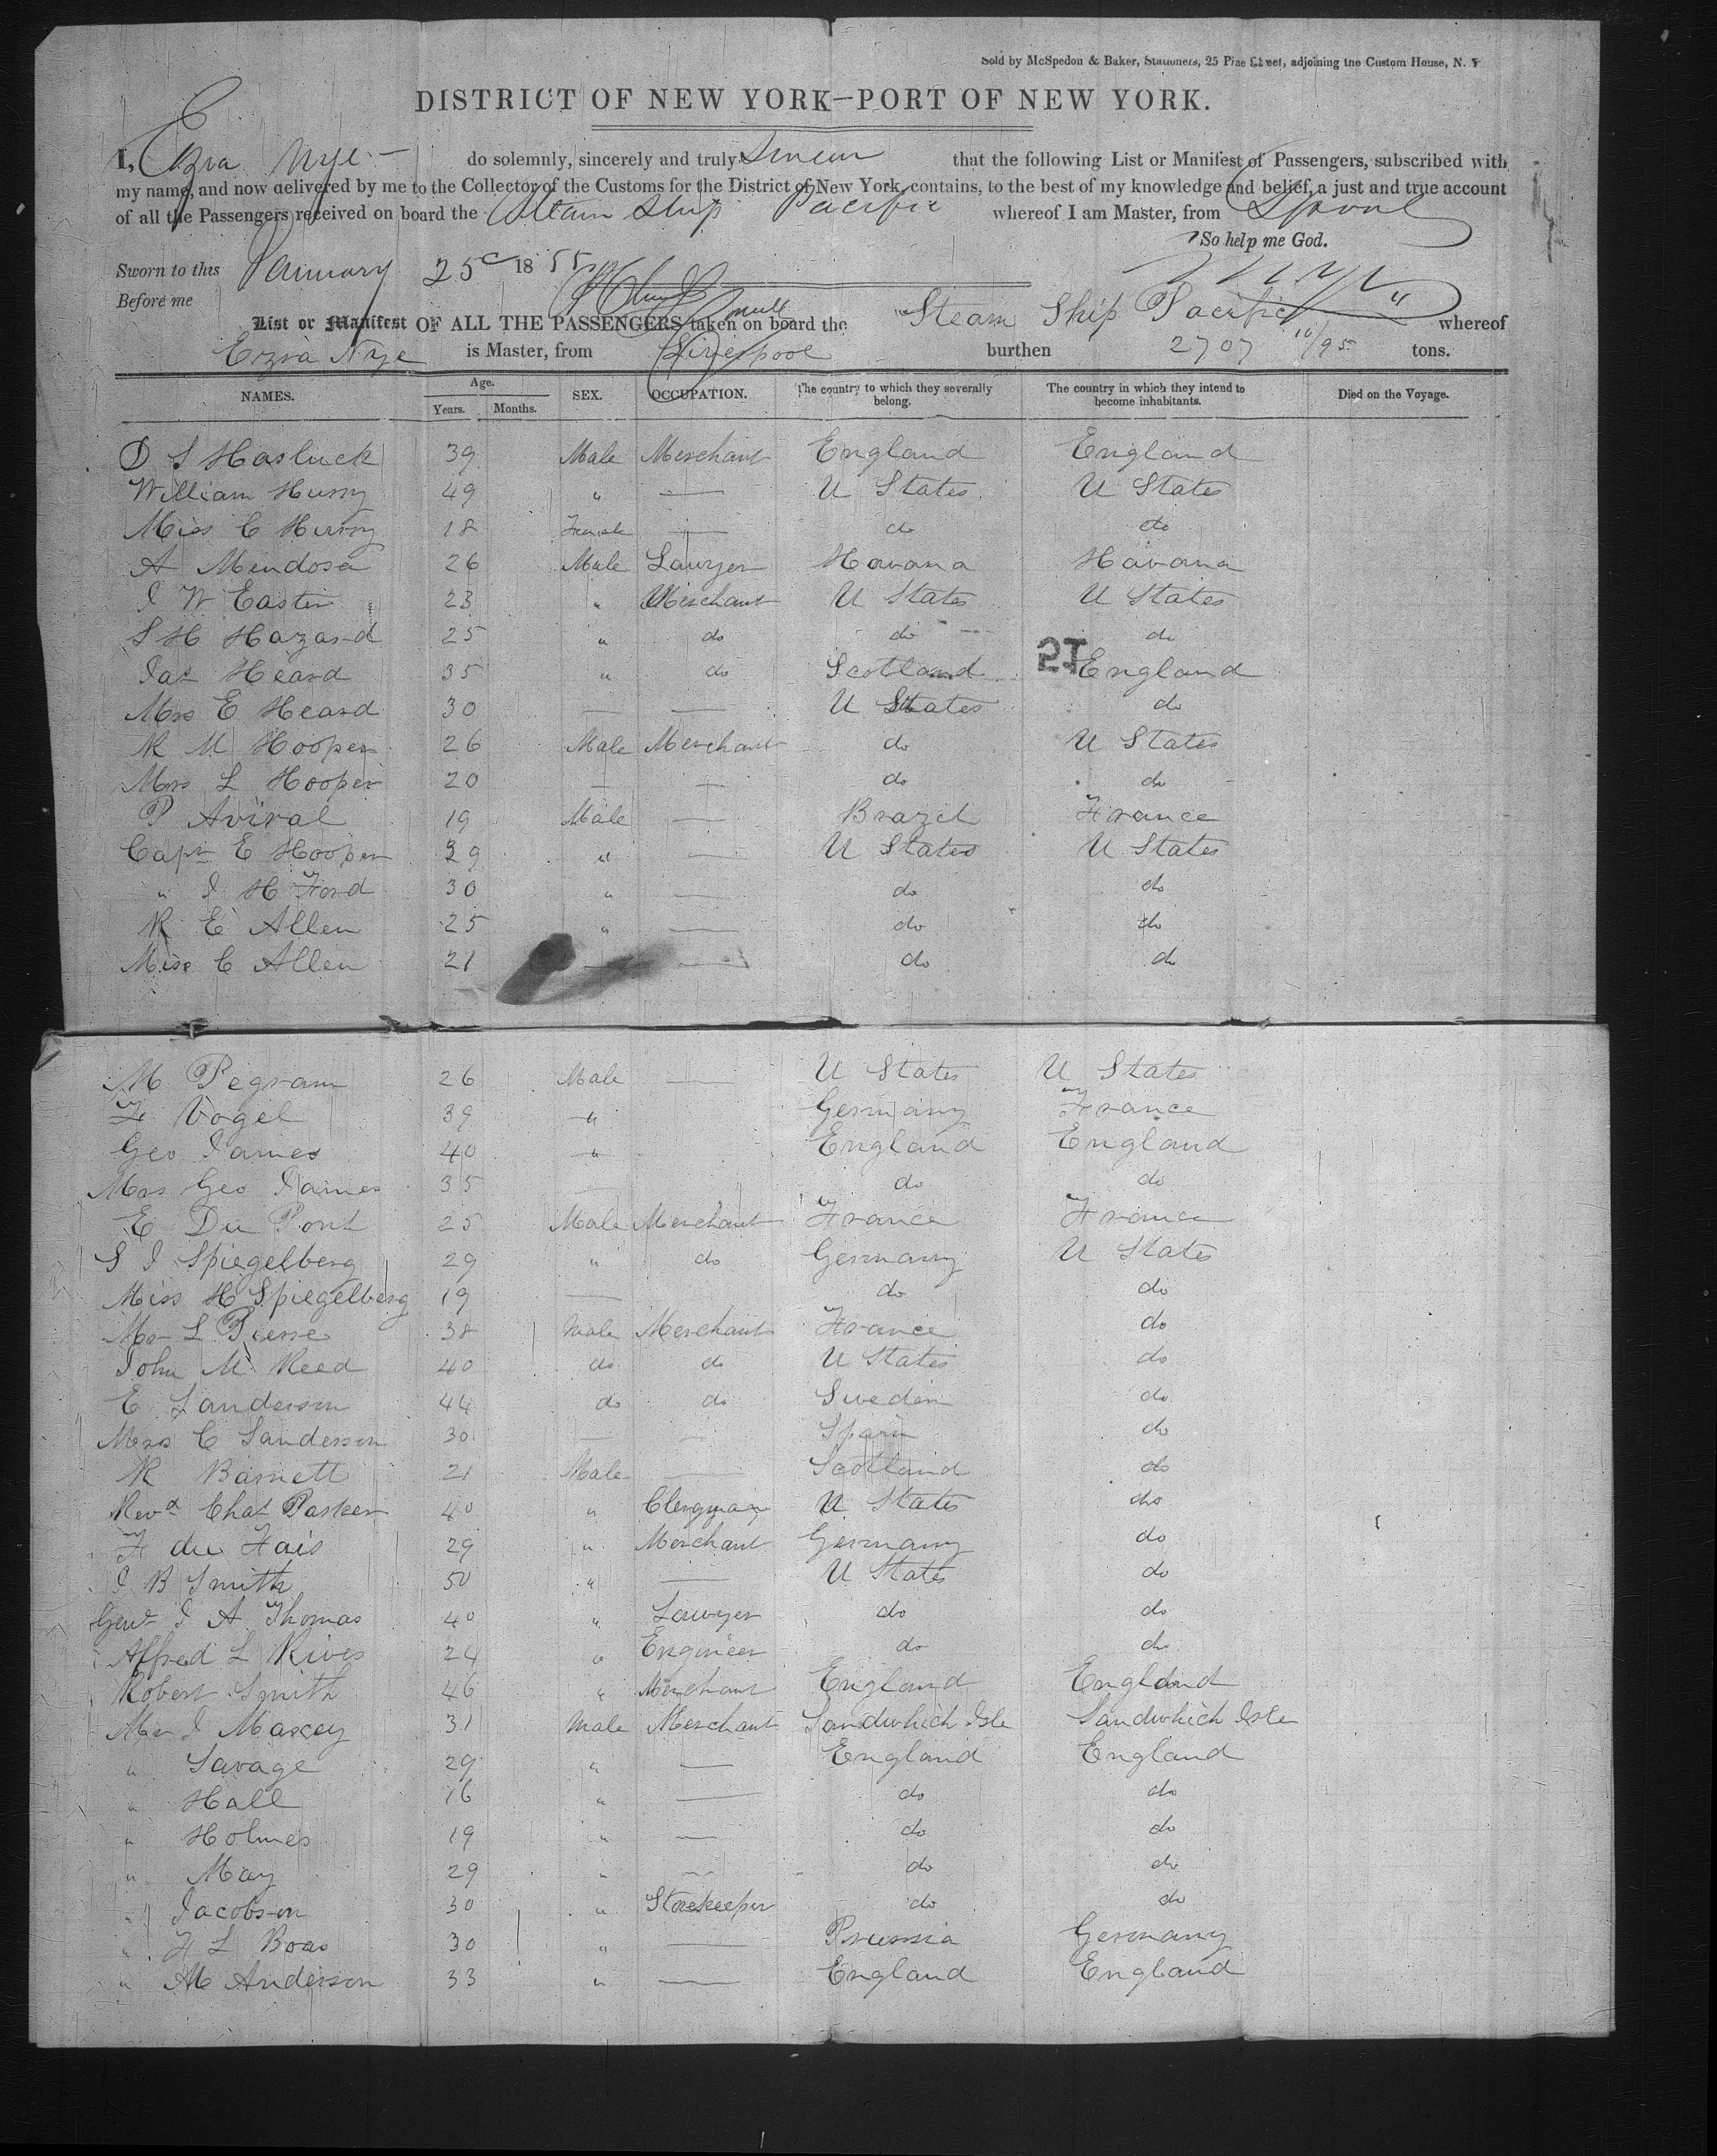 Sold by McSpedon & Baker, Stationers, 25 Pine Street, adjoining the Custom House, N. Y
DISTRICT OF NEW YORK—PORT OF NEW YORK.
I, Ezra Nye do solemnly, sincerely and truly Swear that the following List or Manifest of Passengers, subscribed with
my name, and now delivered by me to the Collector of the Customs for the District of New York, contains, to the best of my knowledge and belief, a just and true account
of all the Passengers received on board the Steam Ship Pacific whereof I am Master, from Lpool
So help me God.
Sworn to this January 25 1855
Before me
List or Manifest OF ALL THE PASSENGERS taken on board the Steam Ship Pacific whereof
Ezra Nye is Master, from Liverpool burthen 2707 10/95 tons.
NAMES. Age. Years. Months. SEX. OCCUPATION. The country to which they severally belong. The country in which they intend to become inhabitants. Died on the Voyage.
D S Hasluck 39 Male Merchant England England
William Hussy 49 " — U States U States
Miss C Hussy 18 Female — do do
A Mendosa 26 Male Lawyer Havana Havana
I W Easter 23 " Merchant U States U States
S H Hazard 25 " do do do
Jas Heard 35 " do Scotland England
Mrs E Heard 30 — — U States do
R M Hooper 26 Male Merchant do U States
Mrs L Hooper 20 — — do do
P Aviral 19 Male — Brazil France
Capn E Hooper 39 " — U States U States
" I H Ford 30 " — do do
R E Allen 25 " — do do
Miss C Allen 21 — — do do
M Pegram 26 Male — U States U States
F Vogel 39 " Germany France
Geo James 40 " England England
Mrs Geo James 35 — do do
E Du Pont 25 Male Merchant France France
S I Spiegelberg 29 " do Germany U States
Miss H Spiegelberg 19 — do do
Mr L Pierre 38 Male Merchant France do
John M Reed 40 do do U States do
E Sanderson 44 do do Sweden do
Mrs C Sanderson 30 — — Spain do
R Barnett 21 Male — Scotland do
Revd Chas Parker 40 " Clergyman U States do
F du Fais 29 " Merchant Germany do
I B Smith 50 " — U States do
Genl I A Thomas 40 " Lawyer do do
Alfred L Rives 24 " Engineer do do
Robert Smith 46 " Merchant England England
Mr I Maxey 31 Male Merchant Sandwhich Isle Sandwhich Isle
" Savage 29 " — England England
" Hall 16 " — do do
" Holmes 19 " — do do
" May 29 " — do do
" Jacobson 30 " Storekeeper do do
" F L Boas 30 " — Prussia Germany
" M Anderson 33 " — England England